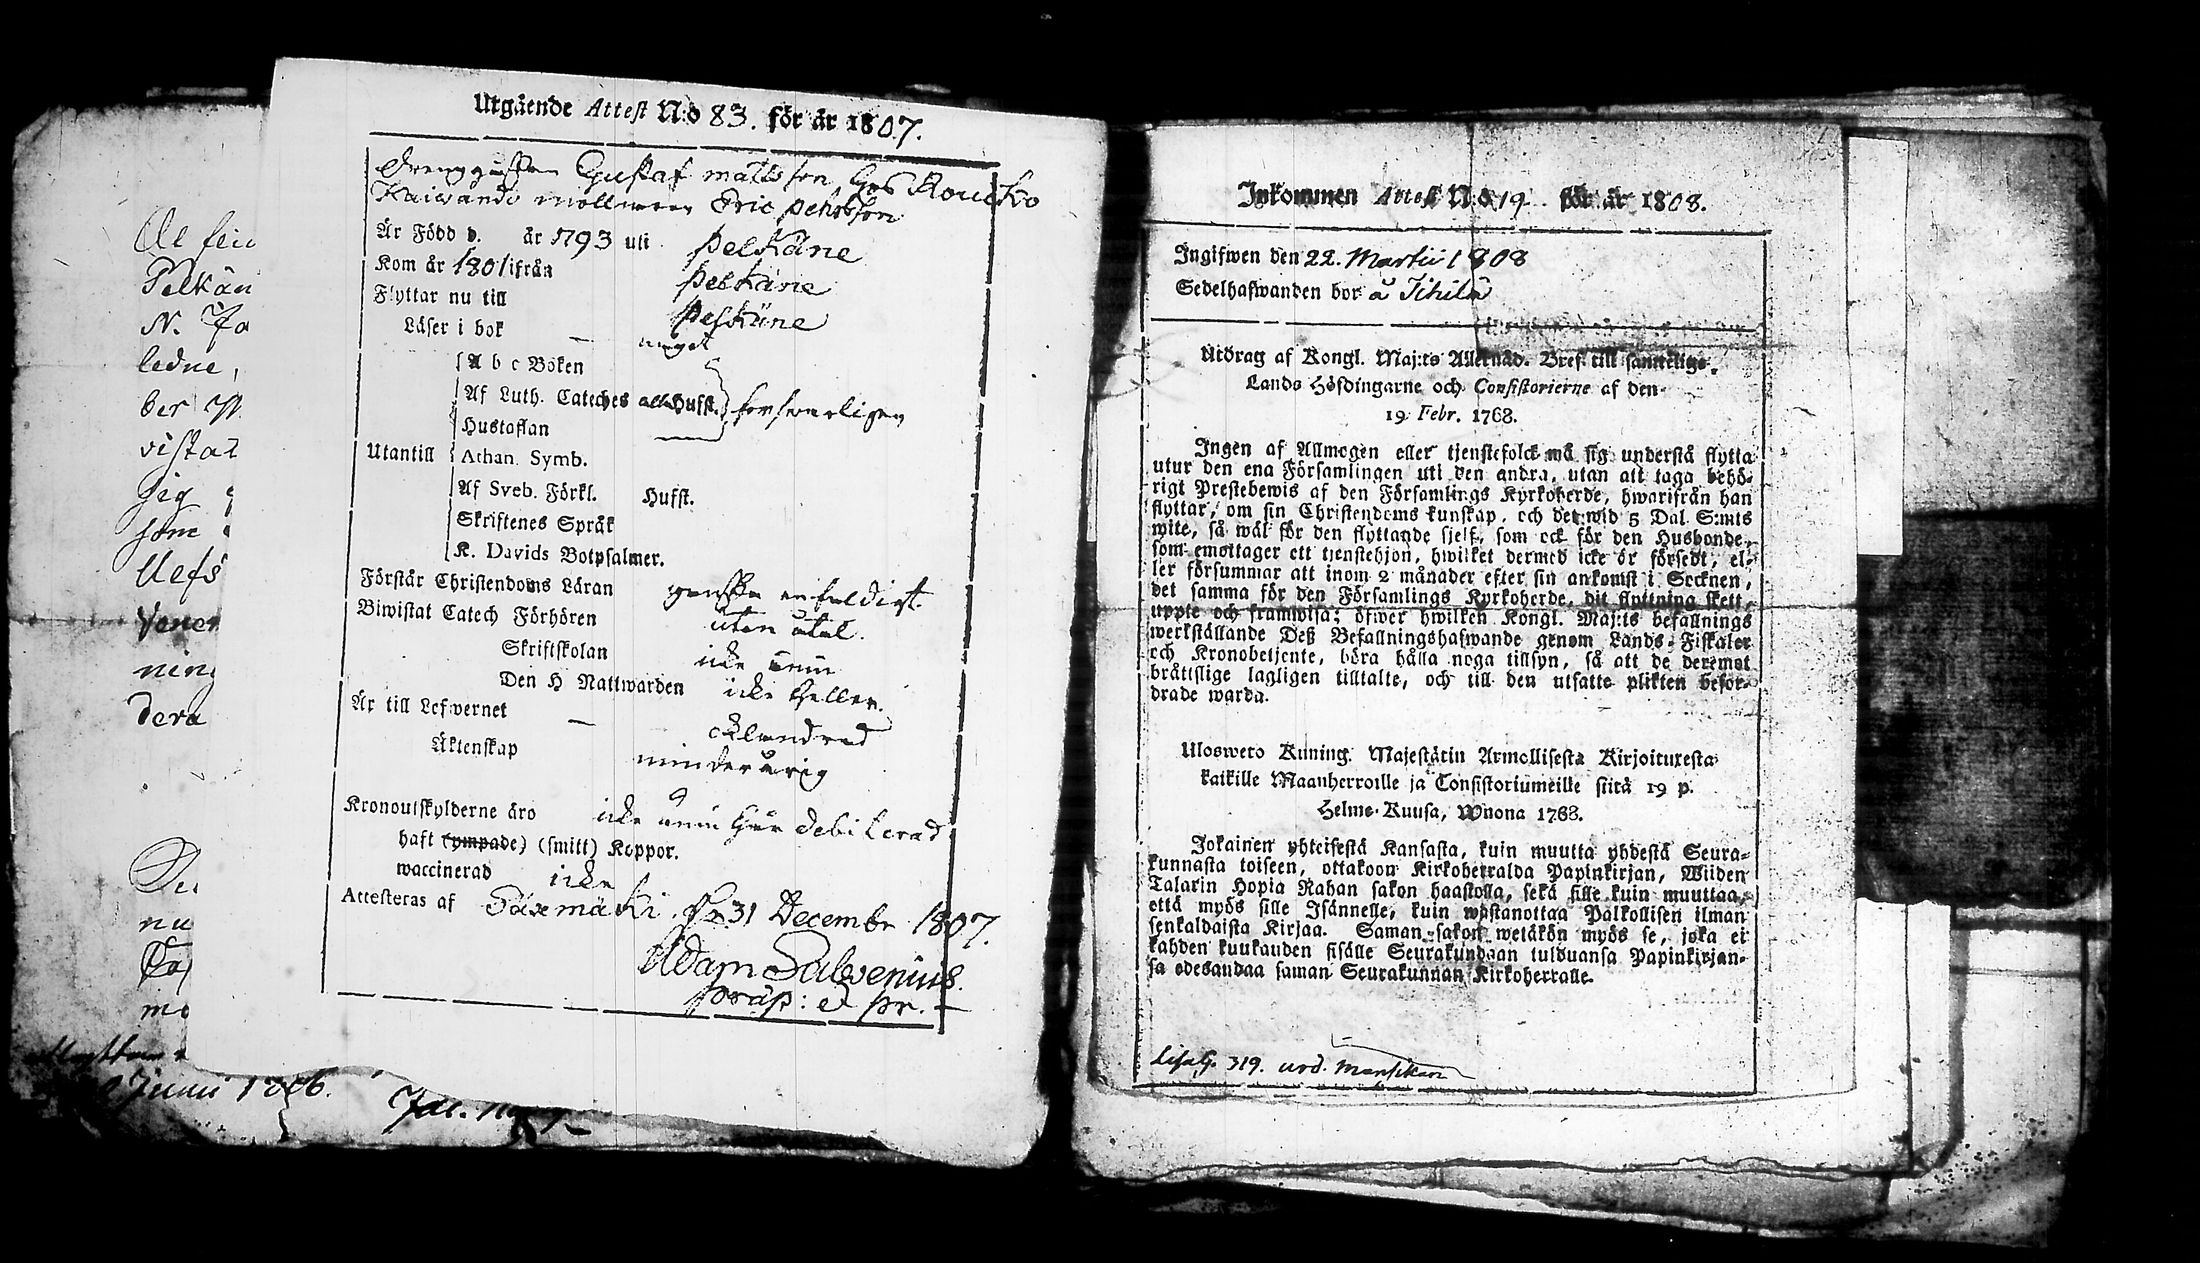 Utgående Attest N:o 83. för år 1807.
Gustaf mattsson hos Rouckο
Kaiwando Eric Pehrsson
Är Född d. år 1793 uti Pelkäne
Kom år 1801 ifrån Pelkäne
Flyttar nu till Pelkäne
Läser i bok — noget
A b c Boken
Af Luth. Cateches alla Hufst. försvarligen
Hustaflan
Utantill Athan. Symb.
Af Sveb. Förkl. Hufst.
Skriftenes Språk
K. Davids Botpsalmer.
Förstår Christendoms Läran ganska enfaldigt
Biwistat Catech Förhören utan åtal.
Skriftskolan icke ännu
Den H Nattwarden icke heller.
Är till Lefwernet — oklandrad
Äktenskap minderårig
Kronoutskylderne äro icke ännu här debiterad
haft (ympade) (smitt) Koppor.
waccinerad icke
Attesteras af Säxmäki d. 31 Decembr 1807.
Adam Salvenius.
præp: et pr.
De fein
Pelkän
N. Ja
ledne,
ber
vistat
jeg
som
Uefs
Vener
ning
dera
nu
Junii 1806.
Jac.
Inkommen Attest N:o 19 för år 1808.
Ingifwen den 22. Martii 1808
Sedelhafwanden bor å Tihilä
Utdrag af Kongl. Maj:ts Allernåd. Bref till samtelige
Lands Höfdingarne och Consistorierne af den
19 Febr. 1768.
Ingen af Allmogen eller tjenstefolck må sig understå flytta
utur den ena Församlingen uti den andra, utan att taga behö-
rigt Prestebewis af den Församlings Kyrkoherde, hwarifrån han
flyttar, om sin Christendoms kunskap, och det wid 5 Dal. S:mts
wite, så wäl för den flyttande sjelf, som ock för den Husbonde,
som emottager ett tjenstehjon, hwilket dermed icke är försedt, el-
ler försummar att inom 2 månader efter sin ankomst i Socknen,
det samma för den Församlings Kyrkoherde, dit flyttning skett,
uppte och framwisa; öfwer hwilken Kongl. Maj:ts befallnings
werkställande Deß Befallningshafwande genom Lands-Fiskaler
och Kronobetjente, böra hålla noga tillsyn, så att de deremot
bråttslige lagligen tilltalte, och till den utsatte plikten befor-
drade warda.
Uloswеto Kuning. Majestätin Armollisesta Kirjoituxesta
kaikille Maanherroille ja Consistoriumeille siitä 19 p.
Helme-Kuusa, Wuona 1768.
Jokainen yhteisestä Kansasta, kuin muutta yhdestä Seura-
kunnasta toiseen, ottakoon Kirkoherralda Papinkirjan, Wiiden
Talarin Hopia Rahan sakon haastolla, sekä sille kuin muuttaa,
että myös sille Isännelle, kuin wastanottaa Palkollisen ilman
senkaldaista Kirjaa. Saman sakon wetäkön myös se, joka ei
kahden kuukauden sisälle Seurakundaan tulduansa Papinkirjan-
sa edesandaa saman Seurakunnan Kirkoherralle.
319.